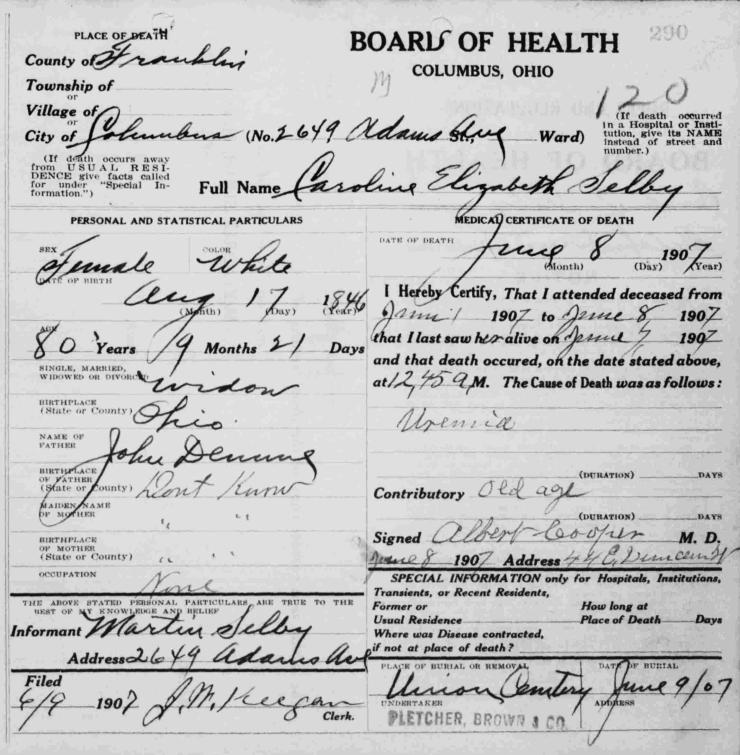 PLACE OF DEATH
BOARD OF HEALTH
290
COLUMBUS, OHIO
County of Franklin
Township of
or
Village of
or
City of Columbus (No. 2649 Adams Ave St., Ward)
120
(If death occurred in a Hospital or Insti-
tution, give its NAME
instead of street and
number.)
(If death occurs away
from USUAL RESI-
DENCE give facts called
for under "Special In-
formation.")
Full Name Caroline Elizabeth Selby
PERSONAL AND STATISTICAL PARTICULARS
SEX
Female
COLOR
White
DATE OF BIRTH
Aug 17 1846
(Month) (Day) (Year)
AGE
80 Years 9 Months 21 Days
SINGLE, MARRIED,
WIDOWED OR DIVORCED
Widow
BIRTHPLACE
(State or County)
Ohio
NAME OF
FATHER
John
BIRTHPLACE
OF FATHER
(State or County)
Dont Know
MAIDEN NAME
OF MOTHER
" "
BIRTHPLACE
OF MOTHER
(State or County)
" "
OCCUPATION
None
THE ABOVE STATED PERSONAL PARTICULARS ARE TRUE TO THE
BEST OF MY KNOWLEDGE AND BELIEF
Informant Martin Selby
Address 2649 Adams Ave
Filed
6/9 1907 J. W. Keegan
Clerk.
MEDICAL CERTIFICATE OF DEATH
DATE OF DEATH
June 8 1907
(Month) (Day) (Year)
I Hereby Certify, That I attended deceased from
June 1 1907 to June 8 1907
that I last saw her alive on June 7 1907
and that death occured, on the date stated above,
at 12,45 a, M. The Cause of Death was as follows:
Uremia
(DURATION) DAYS
Contributory Old age
(DURATION) DAYS
Signed Albert Cooper M. D.
June 8 1907 Address 44 E
SPECIAL INFORMATION only for Hospitals, Institutions,
Transients, or Recent Residents,
Former or
Usual Residence
How long at
Place of Death Days
Where was Disease contracted,
if not at place of death?
PLACE OF BURIAL OR REMOVAL
Union Cemtery
DATE OF BURIAL
June 9/07
UNDERTAKER
PLETCHER, BROWN & CO.
ADDRESS